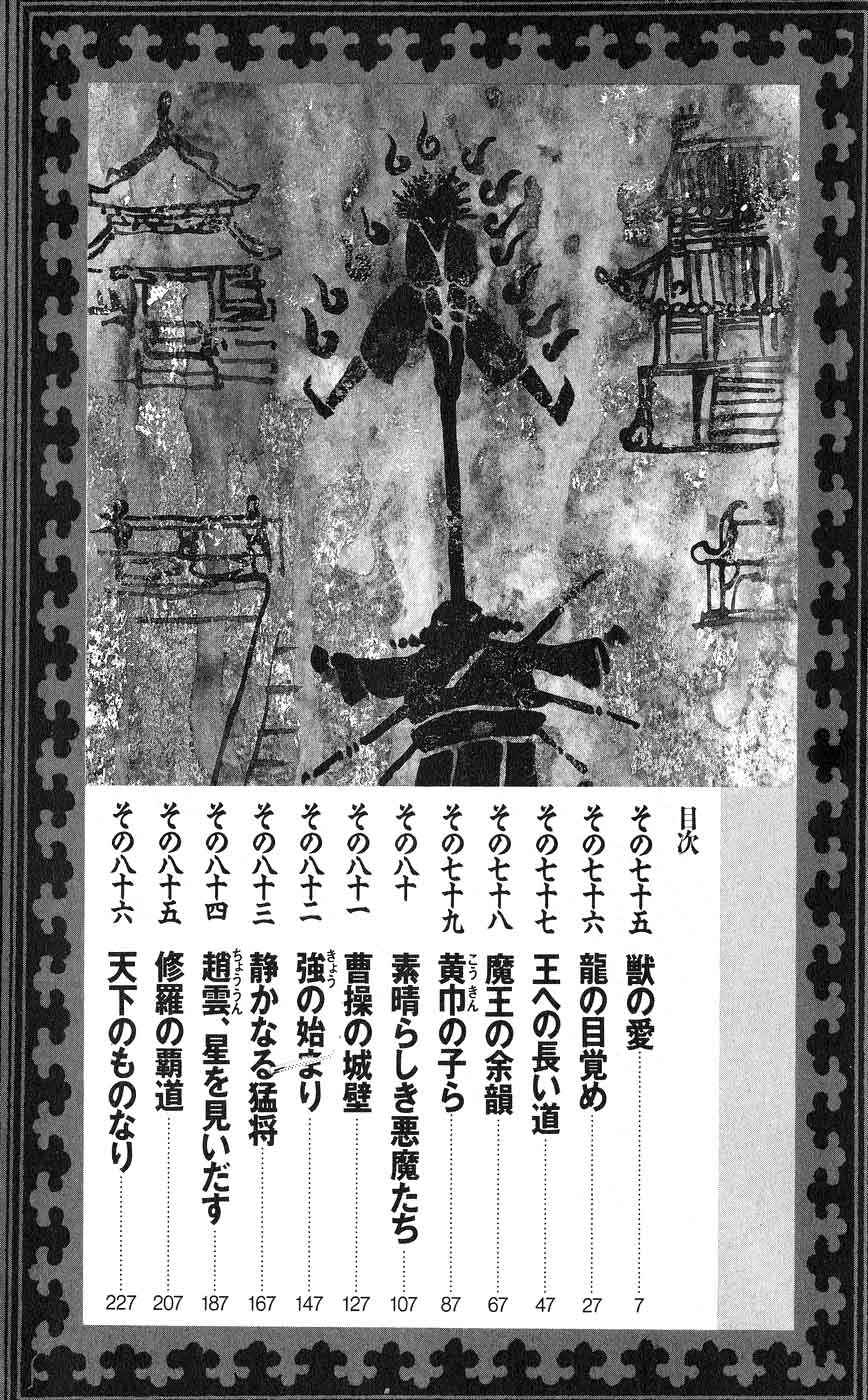 目次
その七十五 獣の愛 7
その七十六 龍の目覚め 27
その七十七 王への長い道 47
その七十八 魔王の余韻 67
その七十九 黄巾の子ら 87
こうきん
その八十 素晴らしき悪魔たち 107
その八十一 曹操の城壁 127
その八十二 強の始まり 147
きょう
その八十三 静かなる猛将 167
その八十四 趙雲、星を見いだす 187
ちょううん
その八十五 修羅の覇道 207
その八十六 天下のものなり 227